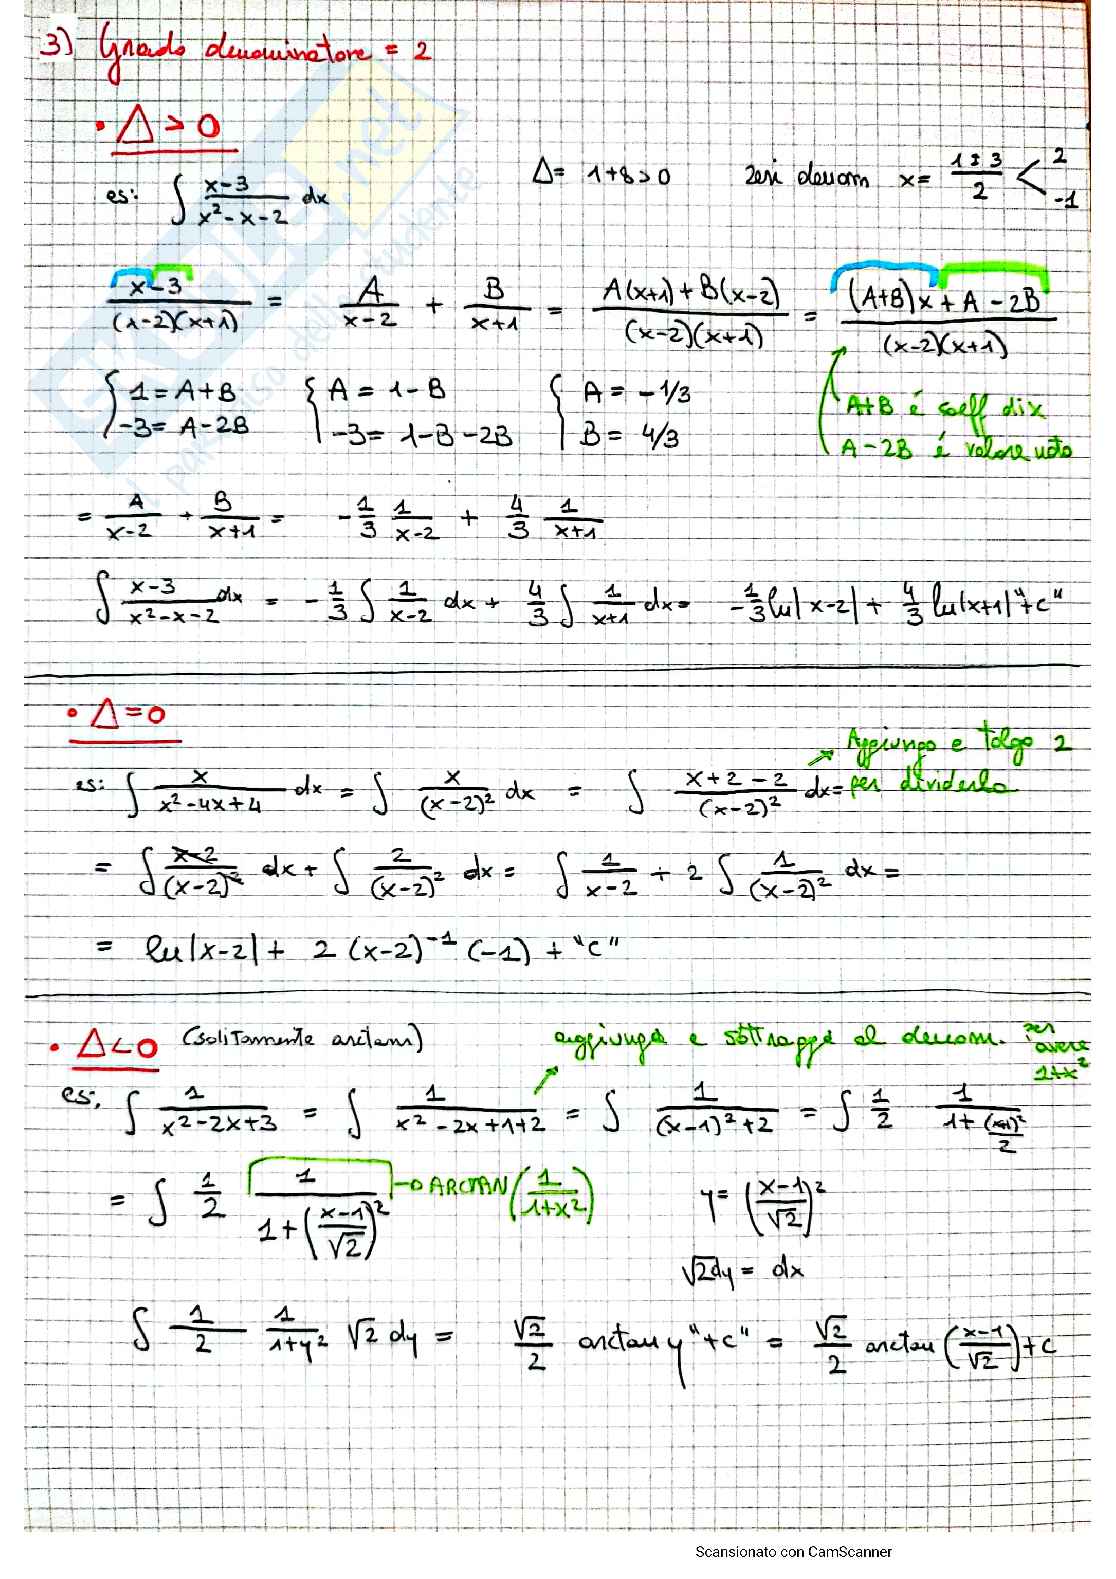 3) Grado denominatore = 2
• Δ > 0
es: ∫ (x-3)/(x²-x-2) dx    Δ = 1+8>0    zeri denom x = (1±3)/2 < 2 -1
(x-3)/((x-2)(x+1)) = A/(x-2) + B/(x+1) = (A(x+1)+B(x-2))/((x-2)(x+1)) = ((A+B)x+A-2B)/((x-2)(x+1))
{ 1=A+B    { A = 1-B    { A = -1/3    A+B é coeff di x
-3= A-2B    -3= 1-B-2B    B = 4/3    A-2B é valore noto
= A/(x-2) + B/(x+1) = -1/3 1/(x-2) + 4/3 1/(x+1)
∫ (x-3)/(x²-x-2) dx = -1/3 ∫ 1/(x-2) dx + 4/3 ∫ 1/(x+1) dx = -1/3 ln|x-2| + 4/3 ln|x+1| "+c"
• Δ=0
Aggiungo e tolgo 2
per dividerlo
es: ∫ x/(x²-4x+4) dx = ∫ x/(x-2)² dx = ∫ (x+2-2)/(x-2)² dx=
= ∫ (x-2)/(x-2)² dx + ∫ 2/(x-2)² dx = ∫ 1/(x-2) + 2 ∫ 1/(x-2)² dx =
= ln|x-2| + 2 (x-2)⁻¹ (-1) + "c"
• Δ<0 (solitamente arctan)    aggiungo e sottraggo al denom. per avere 1+x²
es: ∫ 1/(x²-2x+3) = ∫ 1/(x²-2x+1+2) = ∫ 1/((x-1)²+2) = ∫ 1/2 1/(1+(x-1)²/2)
= ∫ 1/2 1/(1+((x-1)/√2)²) → ARCTAN (1/(1+x²))    y = ((x-1)/√2)²
√2dy = dx
∫ 1/2 1/(1+y²) √2 dy = √2/2 arctan y "+c" = √2/2 arctan ((x-1)/√2) + c
Scansionato con CamScanner